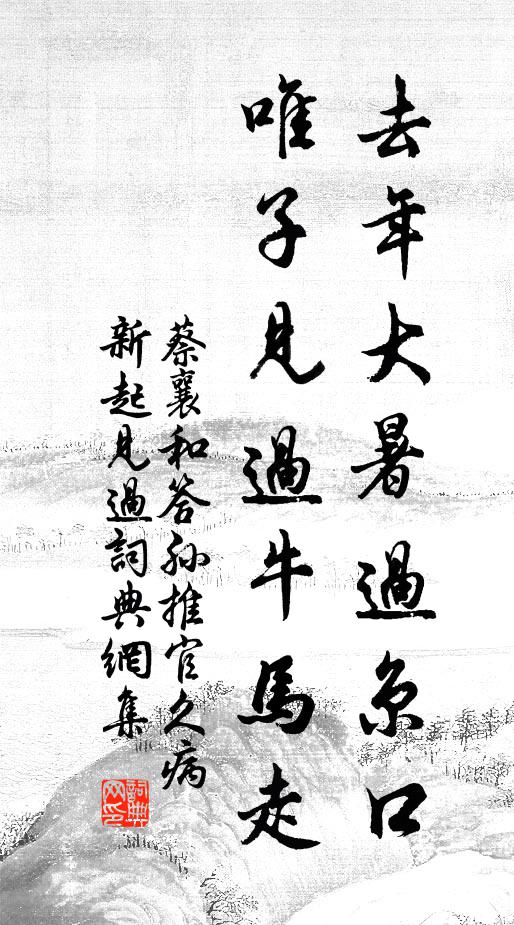 去年大暑過京口
唯子見過牛馬走
蔡襄和答孙推官久病
新起見過詞典網集
詞典网印